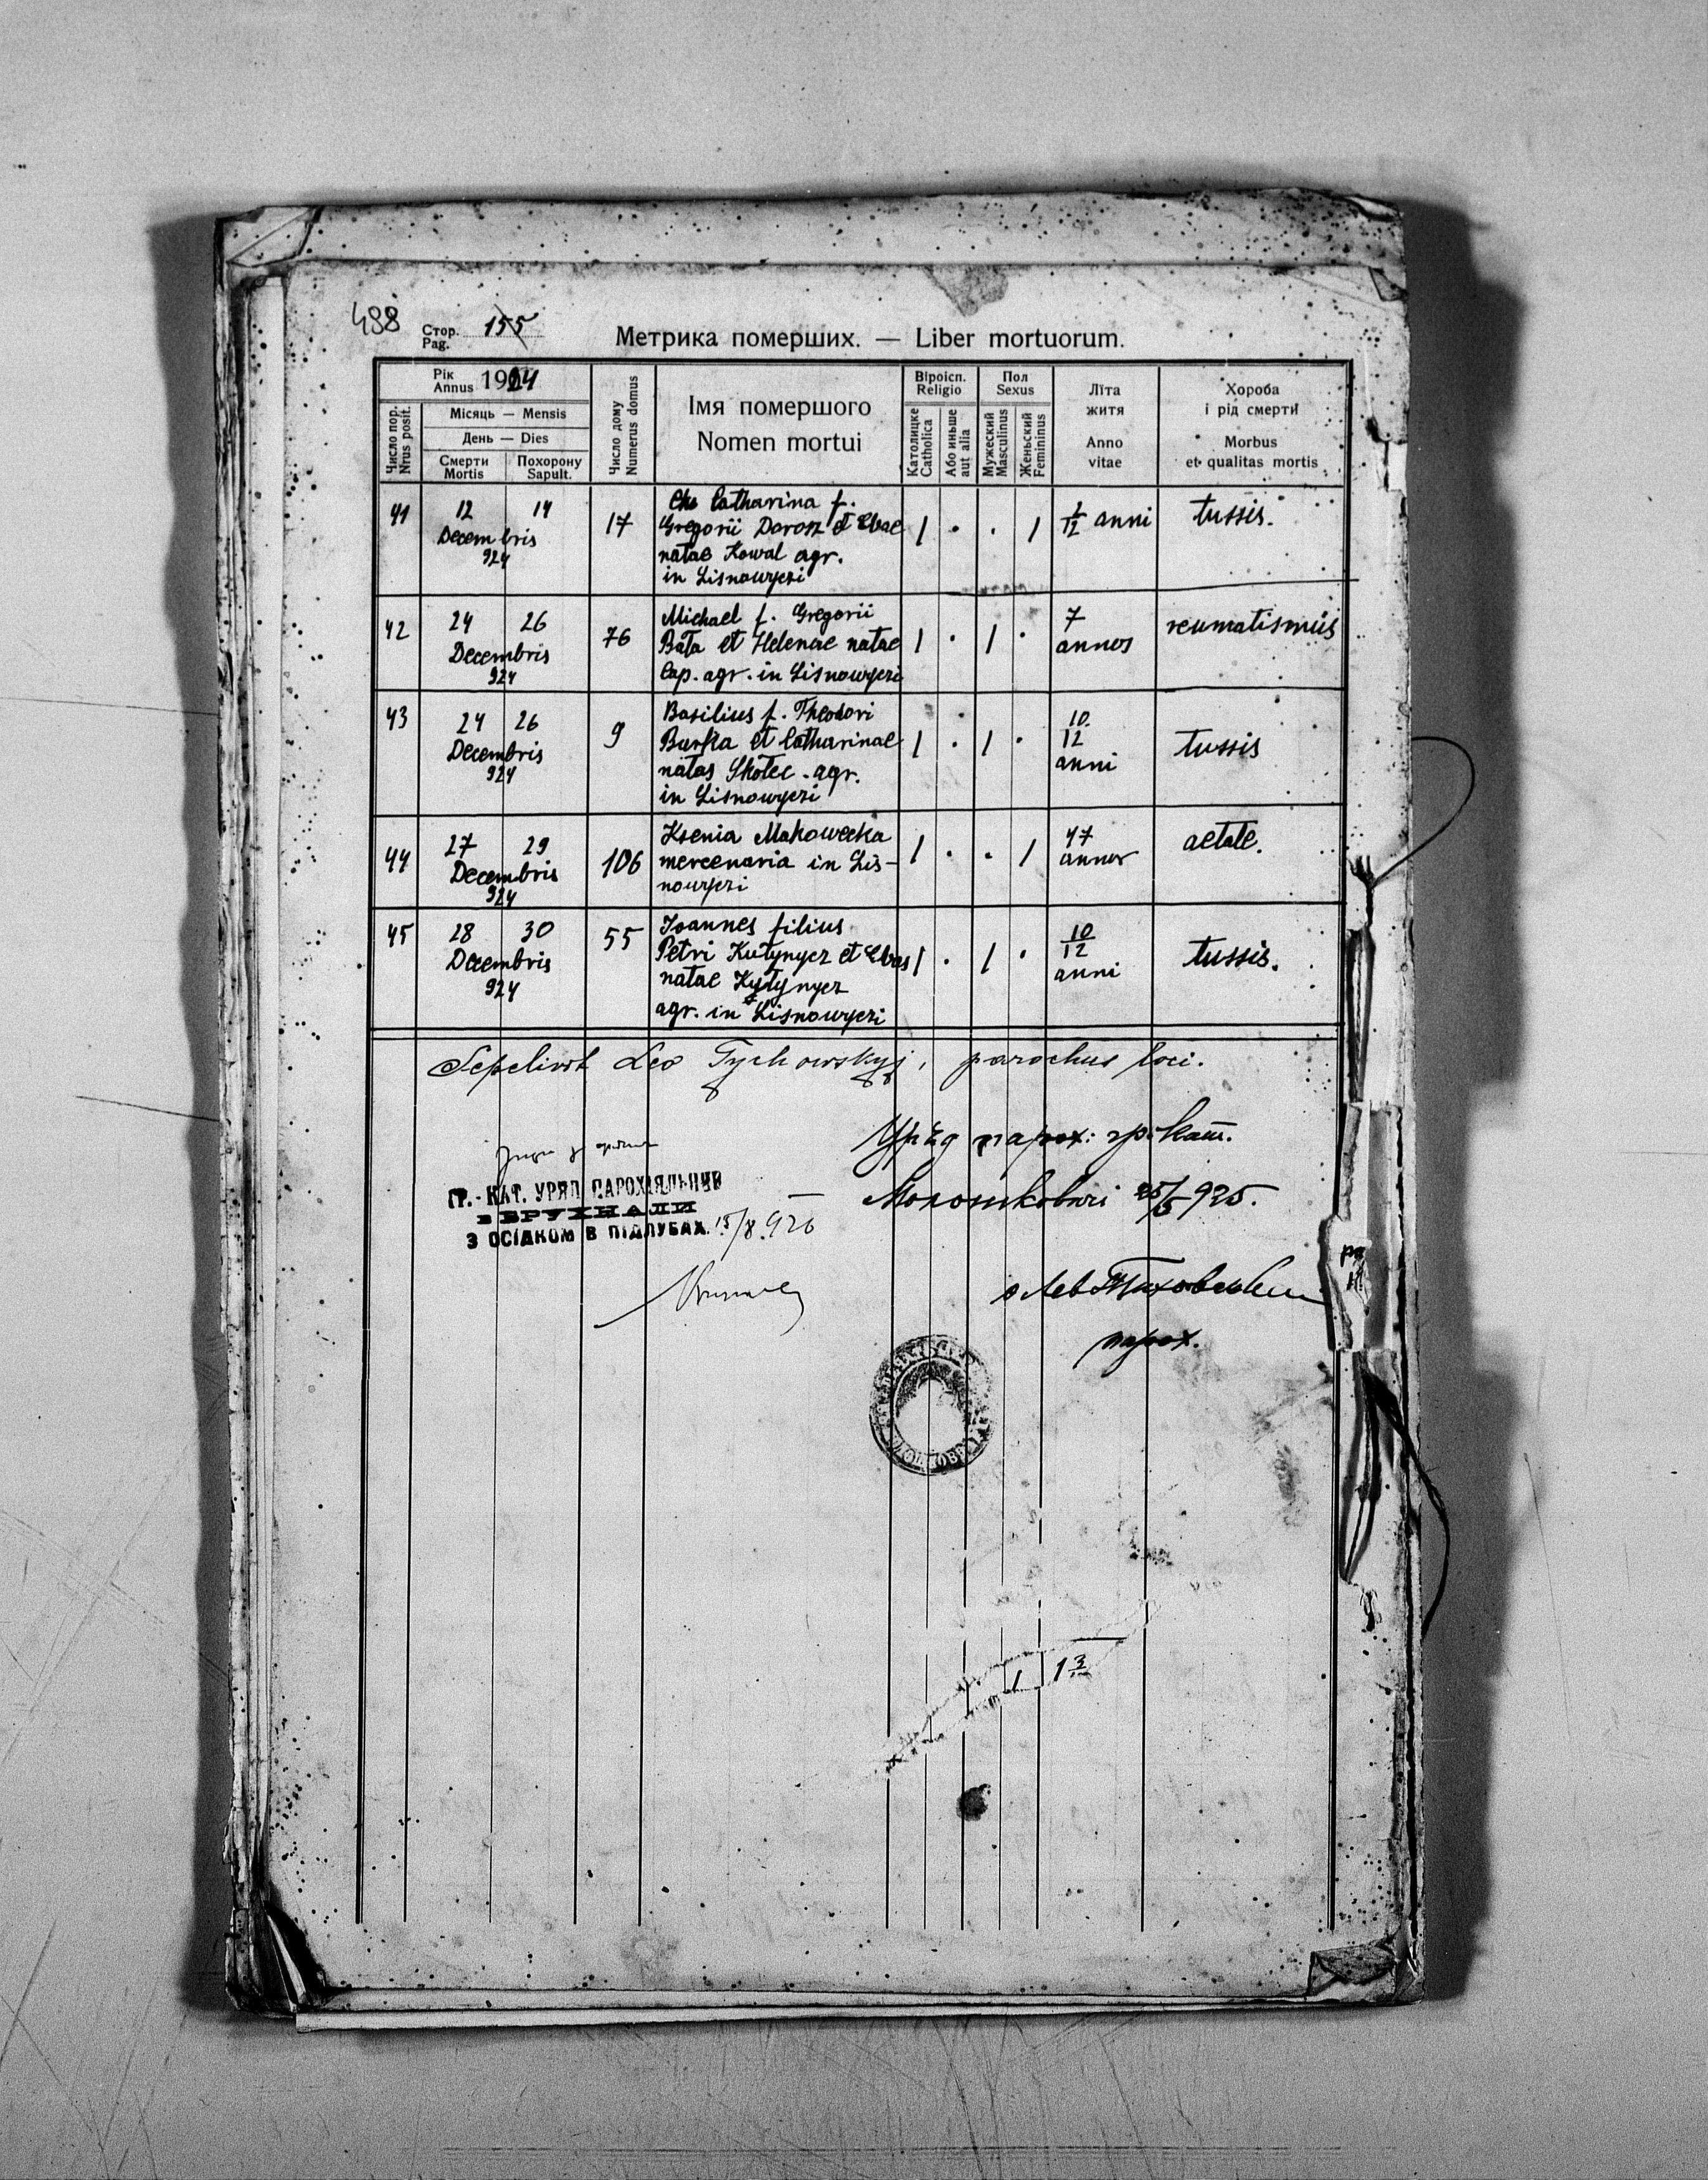 498
Стор. Pag. 155
Метрика померших. — Liber mortuorum.
Рік Annus 1924
Місяць — Mensis
День — Dies
Число пор. Nrus posit.
Смерти Mortis
Похорону Sapult.
Число дому Numerus domus
Імя помершого
Nomen mortui
Віроісп. Religio
Католицке Catholica
Або иньше aut alia
Пол Sexus
Мужеский Masculinus
Женьский Femininus
Лїта житя
Anno vitae
Хороба і рід смерти
Morbus et qualitas mortis
41 12 14 17 Catharina f. 1 . . 1 anni tussis.
Decembris Gregorii Dorosz et Evae
924 natae Kowal agr.
in Lisnowyczi
42 24 26 76 Michael f. Gregorii 1 . 1 . 7 annos reumatismús
Decembris Bata et Helenae natae
924 Cap. agr. in Lisnowyczi
43 24 26 9 Basilius f. Theodori 1 . 1 . 10 12 anni tussis
Decembris Burka et Catharinae
924 natas Skotec. agr.
in Lisnowyczi
44 27 29 106 Ksenia Makowecka 1 . . 1 47 annos aetate.
Decembris mercenaria in Lis-
924 nowyczi
45 28 30 55 Joannes filius 1 . 1 . 10/12 anni tussis.
Decembris Petri Kutynycz et Evas
924 natae Kytynycz
agr. in Lisnowyczi
Sepelivit Leo Tychowskyj, parochus loci.
Уряд парох: гр. кат.
ГР.-КАТ. УРЯД ПАРОХІЯЛЬНИЙ
в БРУХНАЛИ
Молошковичі 25/5 925.
З ОСІДКОМ В ПІДЛУБАХ. 15/8.926
о Лев Тиховський
парох.
1 13